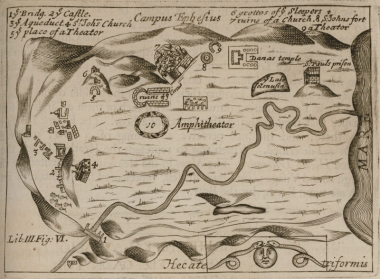 1 yͤ Bridg. 2 yͤ Castle.
3 yͤ Aqueduct 4 Sͭ. Johns Church
5 yͤ place of a Theator
Campus Ephesius
6 grottos of yͤ Sleepers
7 ruins of a Church. 8 Sͭ Johns font
9 a Theator
Dianas temple
Sͭ Pauls prison
ruins of
yͤ Lake
Selenusia
10 Amphitheator
MARE
Lib: III. Fig: VI.
1
Hecate triformis